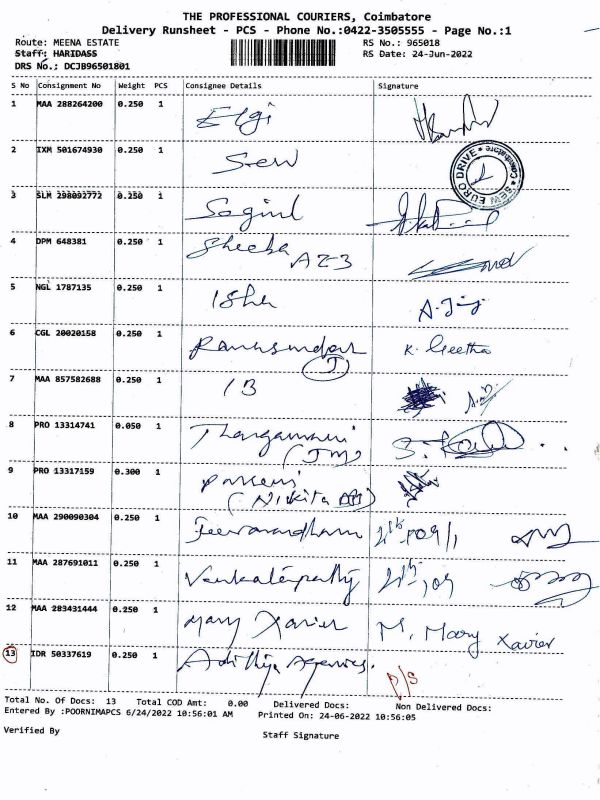 THE PROFESSIONAL COURIERS, Coimbatore
Delivery Runsheet - PCS - Phone No.:0422-3505555 - Page No.:1
Route: MEENA ESTATE RS No.: 965018
Staff: HARIDASS RS Date: 24-Jun-2022
DRS No.: DCJB96501801
S No Consignment No Weight PCS Consignee Details Signature
1 MAA 288264200 0.250 1 Elgi
2 IXM 501674930 0.250 1 Sew
SEW EURO DRIVE ★ Coimbatore ★
3 SLM 298092772 0.250 1
4 DPM 648381 0.250 1 Sheeba AZ3
5 NGL 1787135 0.250 1 Isha
6 CGL 20020158 0.250 1 K. Geetha
7 MAA 857582688 0.250 1 13
8 PRO 13314741 0.050 1
9 PRO 13317159 0.300 1
(Nikita
10 MAA 290090304 0.250 1 Jeevanandham
11 MAA 287691011 0.250 1 Venkatapathy
12 MAA 283431444 0.250 1 Mary Xavier M. Mary Xavier
13 IDR 50337619 0.250 1 Adithya Agencies. P/S
Total No. Of Docs: 13 Total COD Amt: 0.00 Delivered Docs: Non Delivered Docs:
Entered By :POORNIMAPCS 6/24/2022 10:56:01 AM Printed On: 24-06-2022 10:56:05
Verified By Staff Signature